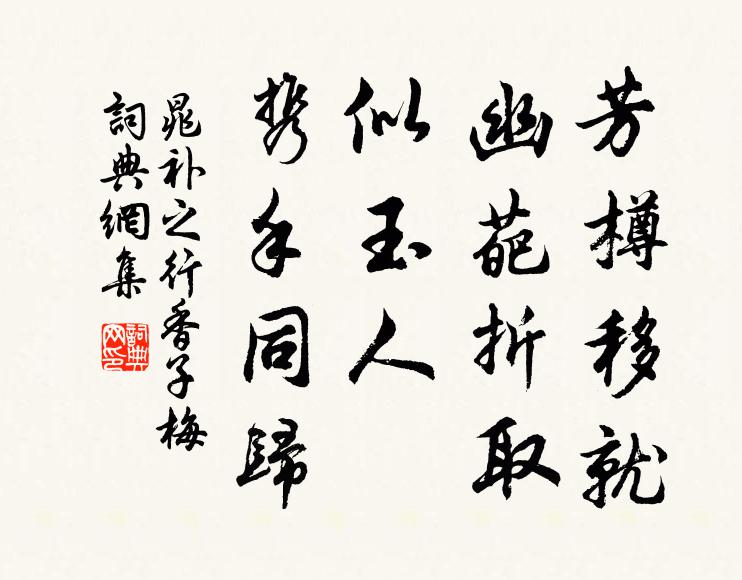 芳樽移就
幽葩折取
似玉人
携手同歸
晁补之行香子梅
詞典網集
詞典網印